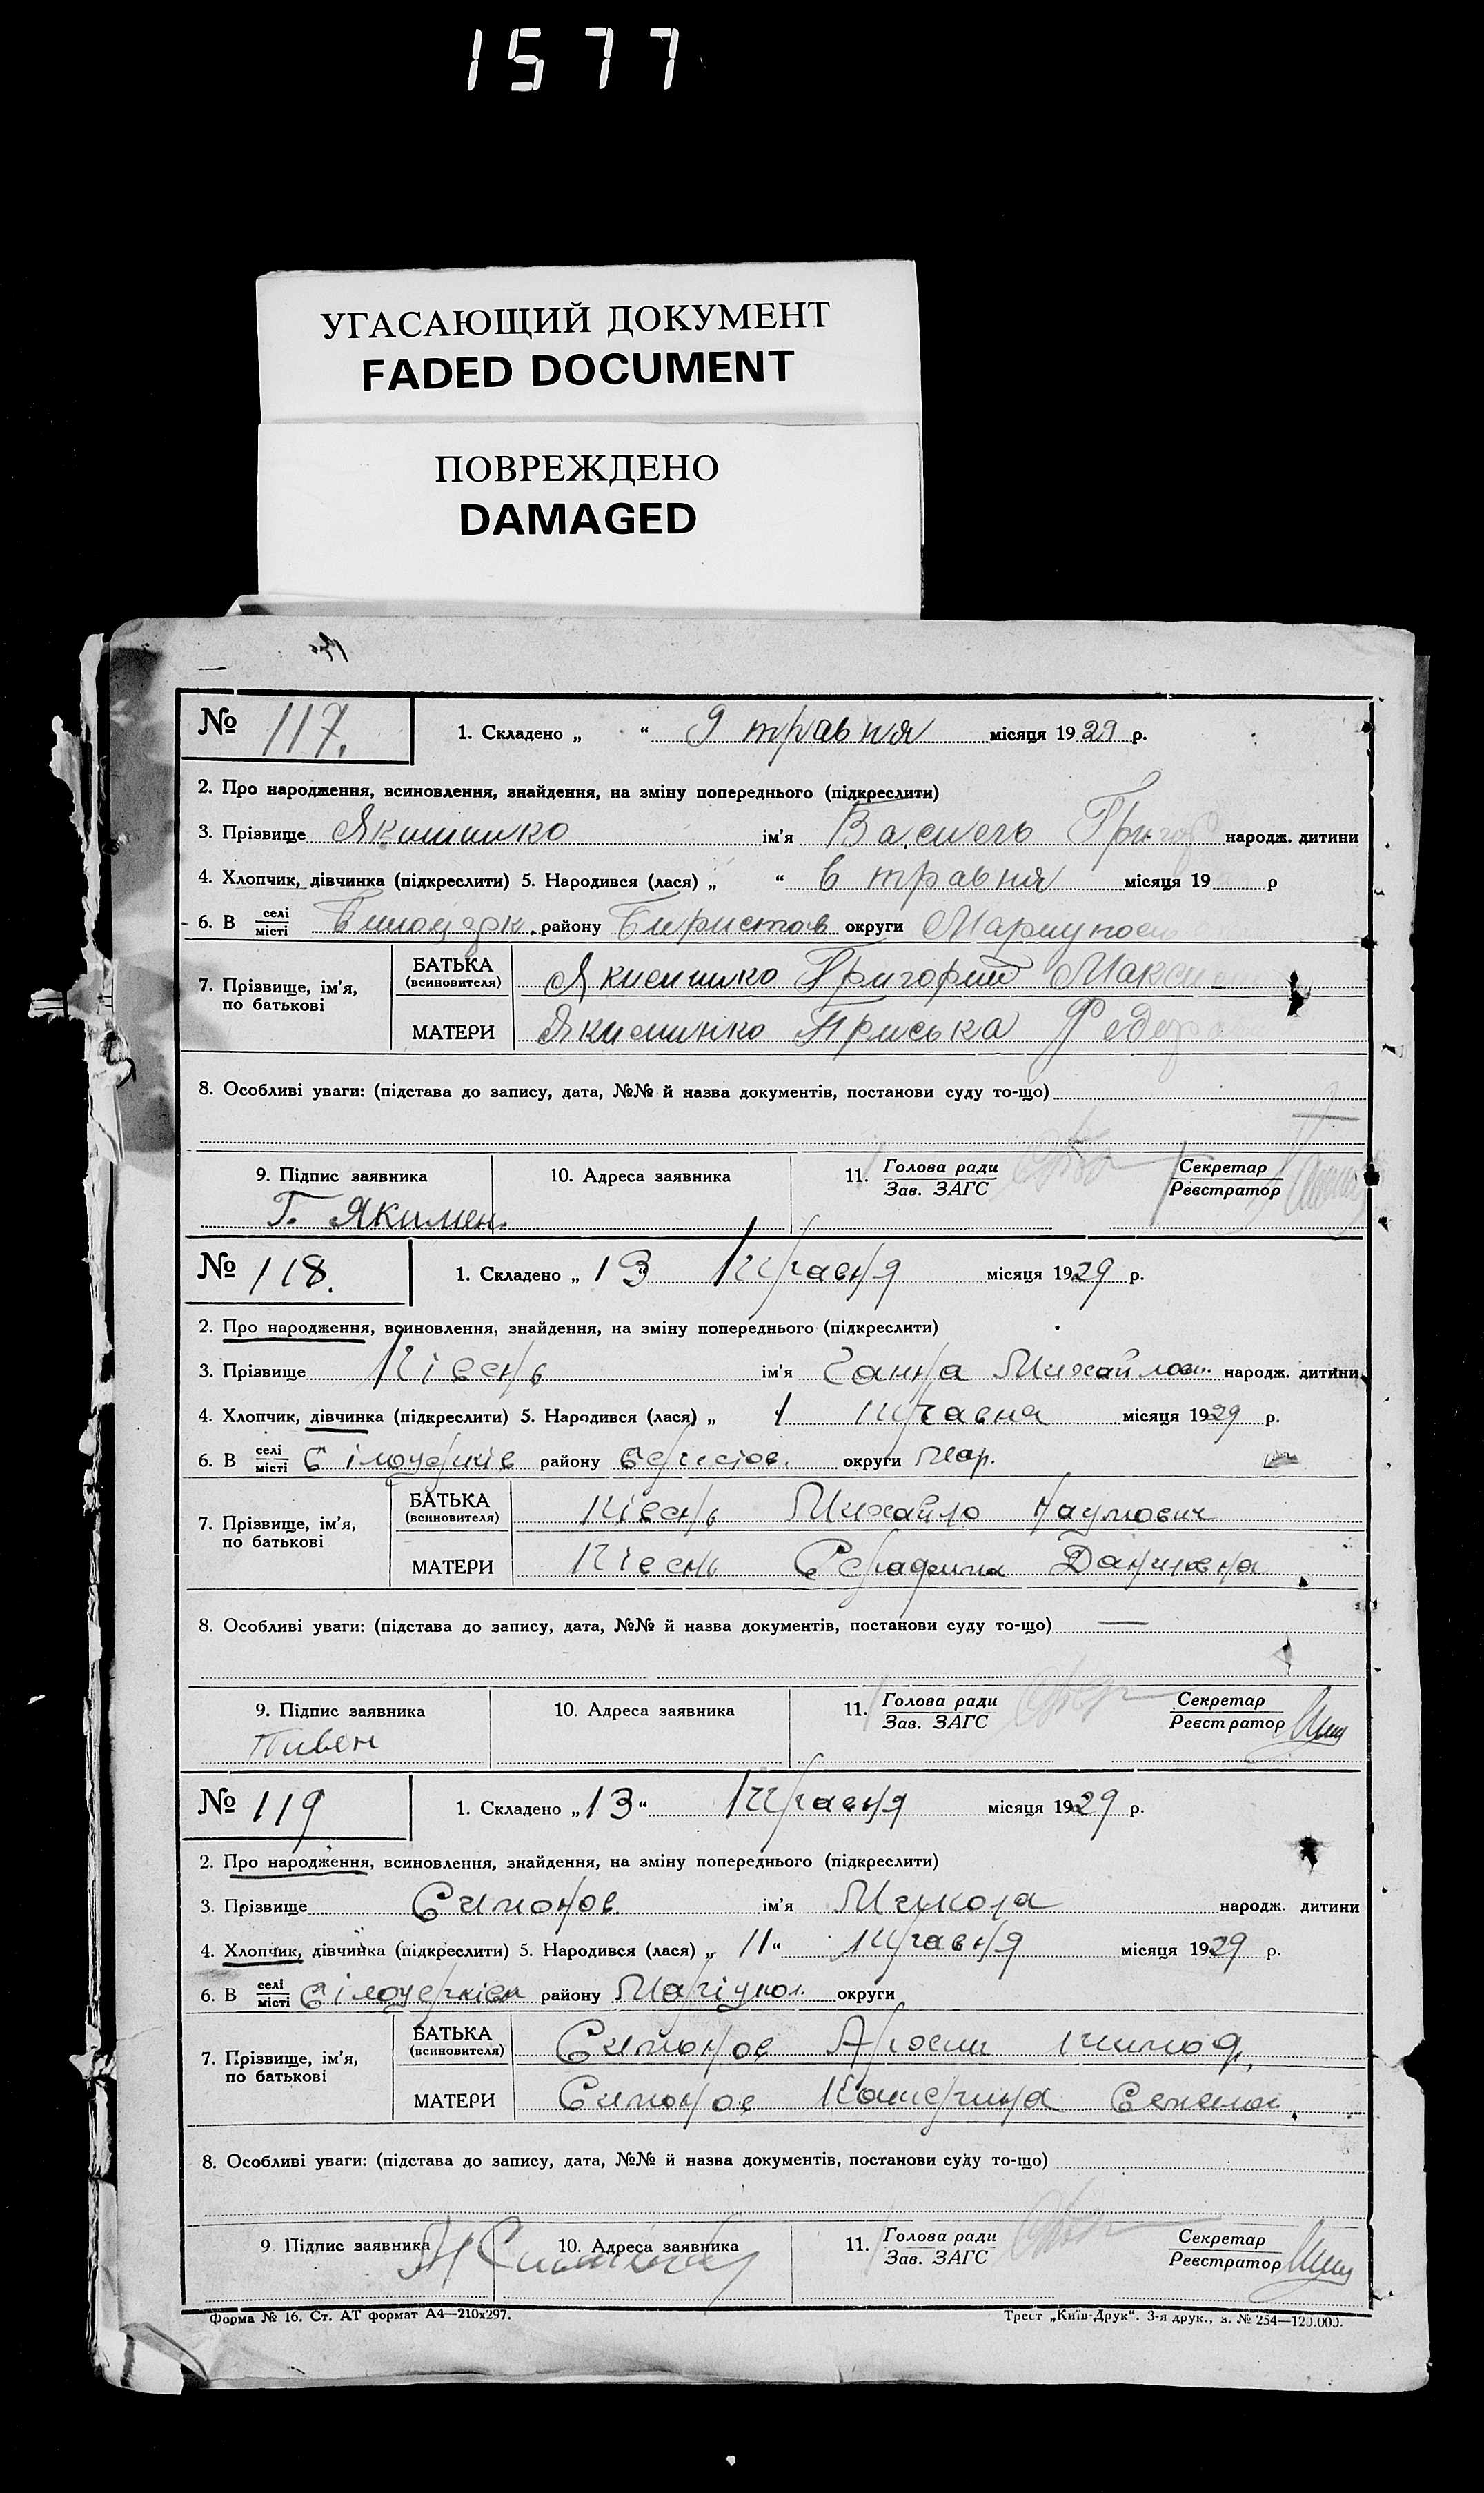 1577
УГАСАЮЩИЙ ДОКУМЕНТ
FADED DOCUMENT
ПОВРЕЖДЕНО
DAMAGED
№ 117. 1. Складено „ “ 9 травня місяця 1929 р.
2. Про народження, всиновлення, знайдення, на зміну попереднього (підкреслити)
3. Прізвище ім’я Василь Григор народж. дитини
4. Хлопчик, дівчинка (підкреслити) 5. Народився (лася) „ “ 6 травня місяця 19 р
6. В селі місті району округи
7. Прізвище, ім’я, по батькові
БАТЬКА (всиновителя) Григорий
МАТЕРИ Приська Федор
8. Особливі уваги: (підстава до запису, дата, №№ й назва документів, постанови суду то-що)
9. Підпис заявника 10. Адреса заявника 11. Голова ради Зав. ЗАГС Секретар Реєстратор
Г. Якимен.
№ 118. 1. Складено „ 13 Травня місяця 1929 р.
2. Про народження, всиновлення, знайдення, на зміну попереднього (підкреслити)
3. Прізвище Півень ім’я Ганна народж. дитини
4. Хлопчик, дівчинка (підкреслити) 5. Народився (лася) „ 1 Травня місяця 1929 р.
6. В селі місті району округи Мар.
7. Прізвище, ім’я, по батькові
БАТЬКА (всиновителя) Півень Михайло Наумович
МАТЕРИ Півень Даниловна
8. Особливі уваги: (підстава до запису, дата, №№ й назва документів, постанови суду то-що) —
9. Підпис заявника 10. Адреса заявника 11. Голова ради Зав. ЗАГС Секретар Реєстратор
Пивен
№ 119 1. Складено „ 13 “ Травня місяця 1929 р.
2. Про народження, всиновлення, знайдення, на зміну попереднього (підкреслити)
3. Прізвище Симонов ім’я Микола народж. дитини
4. Хлопчик, дівчинка (підкреслити) 5. Народився (лася) „ 11 “ Травня місяця 1929 р.
6. В селі місті району Маріупол. округи
7. Прізвище, ім’я, по батькові
БАТЬКА (всиновителя) Симонов
МАТЕРИ Симонов Катерина
8. Особливі уваги: (підстава до запису, дата, №№ й назва документів, постанови суду то-що)
9. Підпис заявника 10. Адреса заявника 11. Голова ради Зав. ЗАГС Секретар Реєстратор
Форма № 16. Ст. АТ формат А4—210х297. Трест „Київ-Друк“. 3-я друк., з. № 254—120.000.